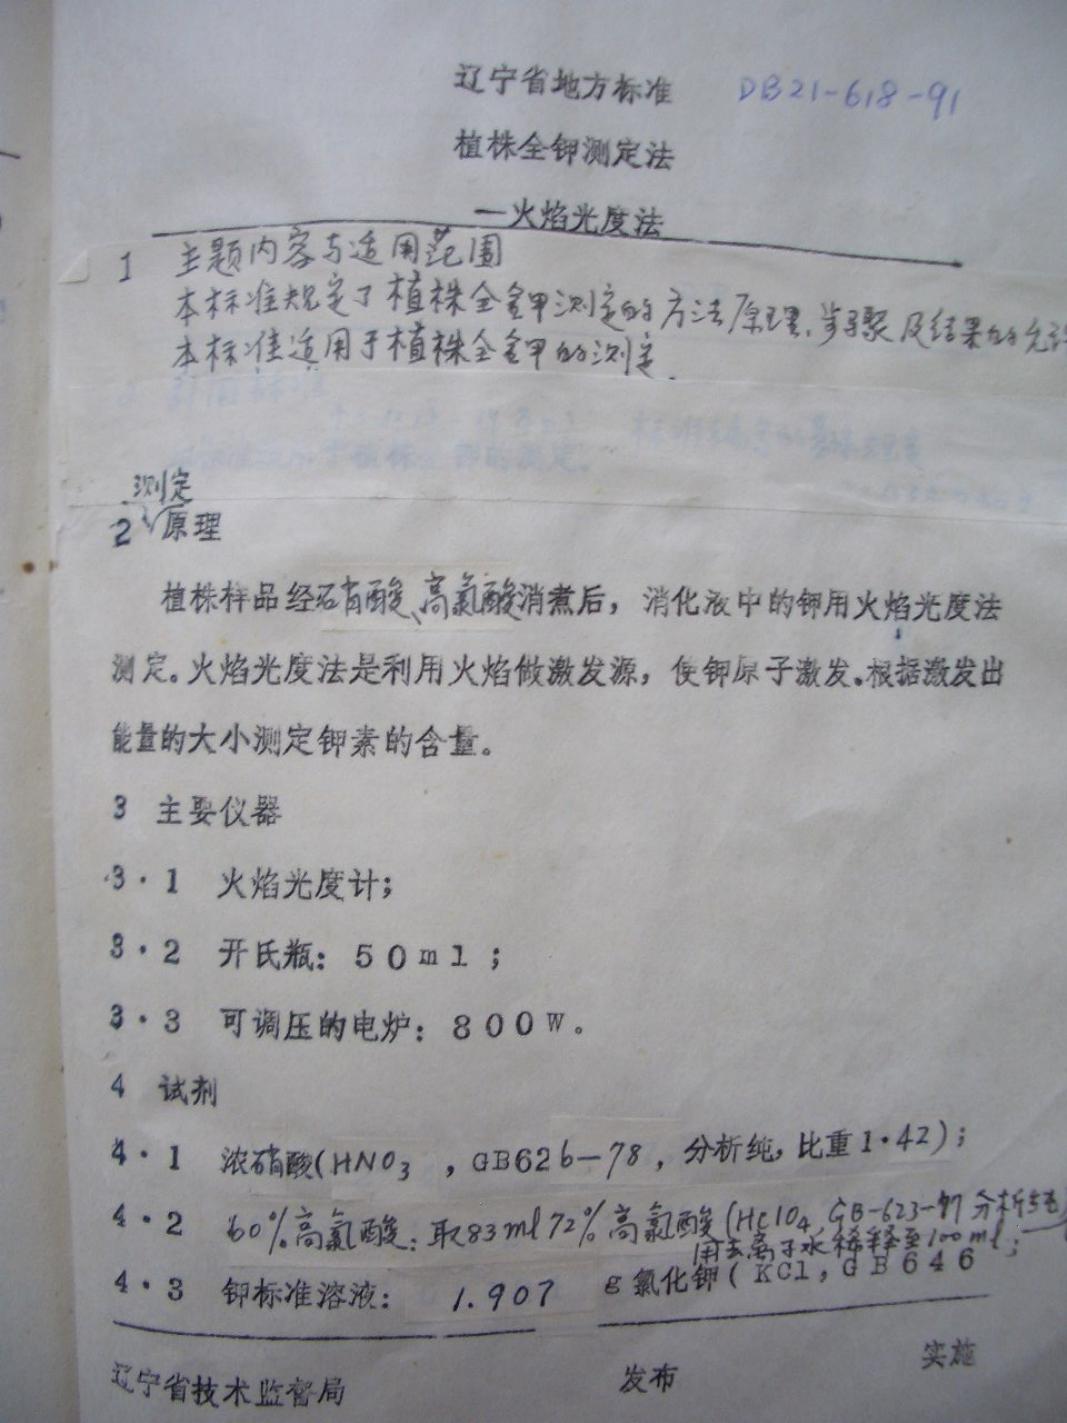 辽宁省地方标准 DB21-618-91
植株全钾测定法
—火焰光度法
1 主题内容与适用范围
本标准规定了植株全钾测定的方法原理、步骤及结果的允许
本标准适用于植株全钾的测定.
测定
2 原理
植株样品经硝酸、高氯酸消煮后，消化液中的钾用火焰光度法
测定。火焰光度法是利用火焰做激发源，使钾原子激发。根据激发出
能量的大小测定钾素的含量。
3 主要仪器
3·1 火焰光度计；
3·2 开氏瓶：50ml；
3·3 可调压的电炉：800W。
4 试剂
4·1 浓硝酸(HNO3，GB626-78，分析纯，比重1·42)；
4·2 60%高氯酸：取83ml72%高氯酸(HClO4, GB-623-77 分析纯)
用去离子水稀释至100ml；
4·3 钾标准溶液：1.907 g氯化钾(KCl，GB646
辽宁省技术监督局 发布 实施